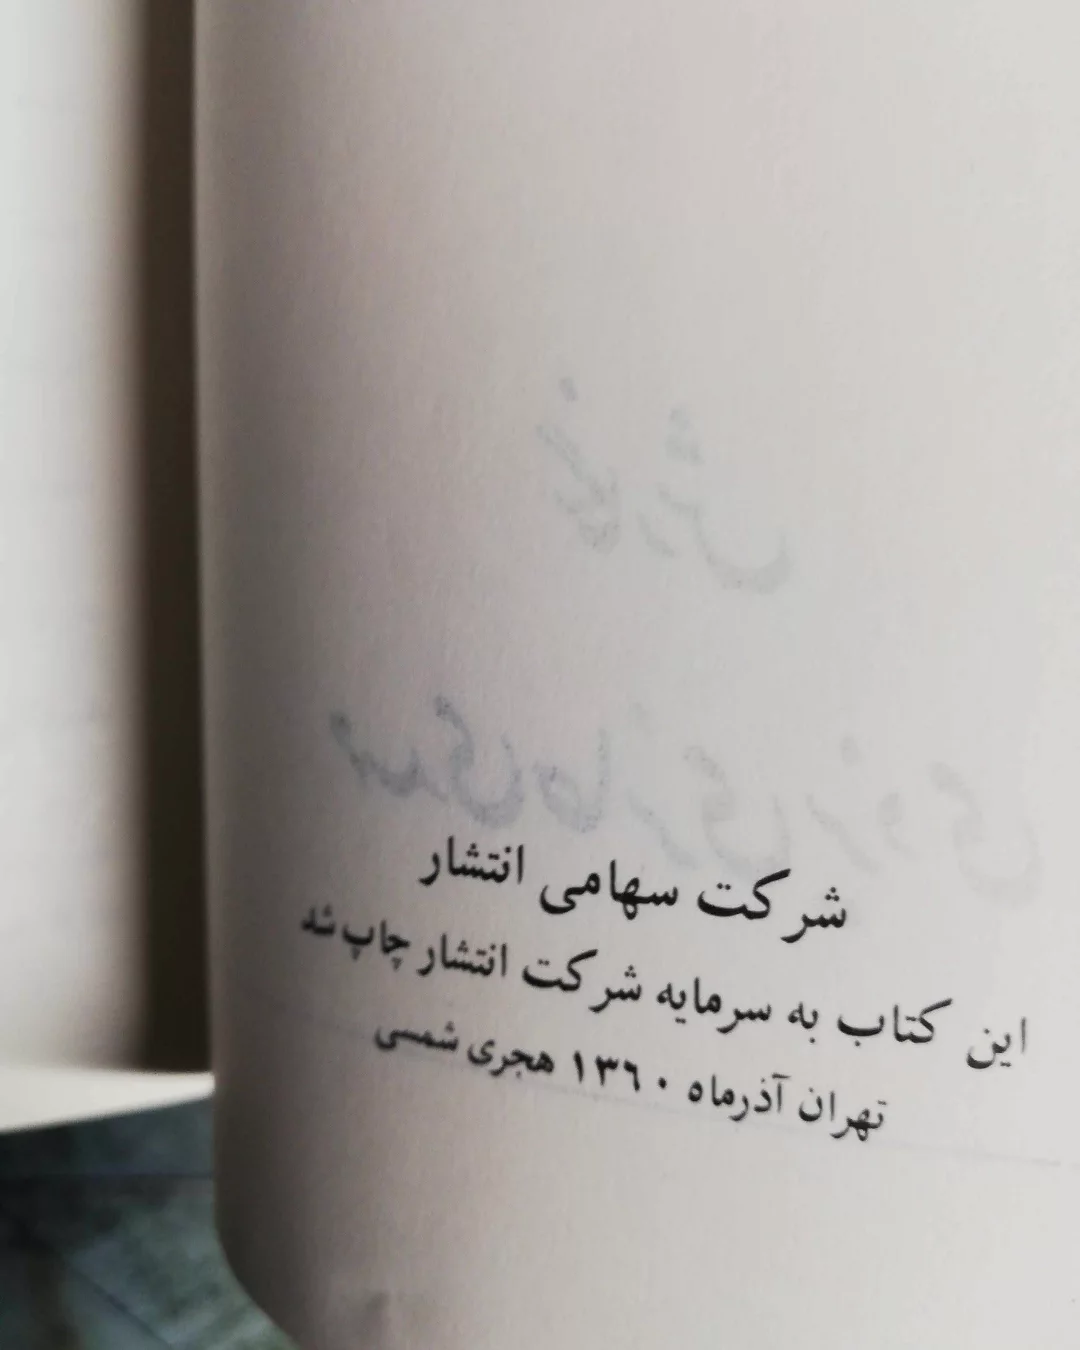 شرکت سهامی انتشار
این کتاب به سرمایه شرکت انتشار چاپ شد
تهران آذرماه ۱۳۶۰ هجری شمسی